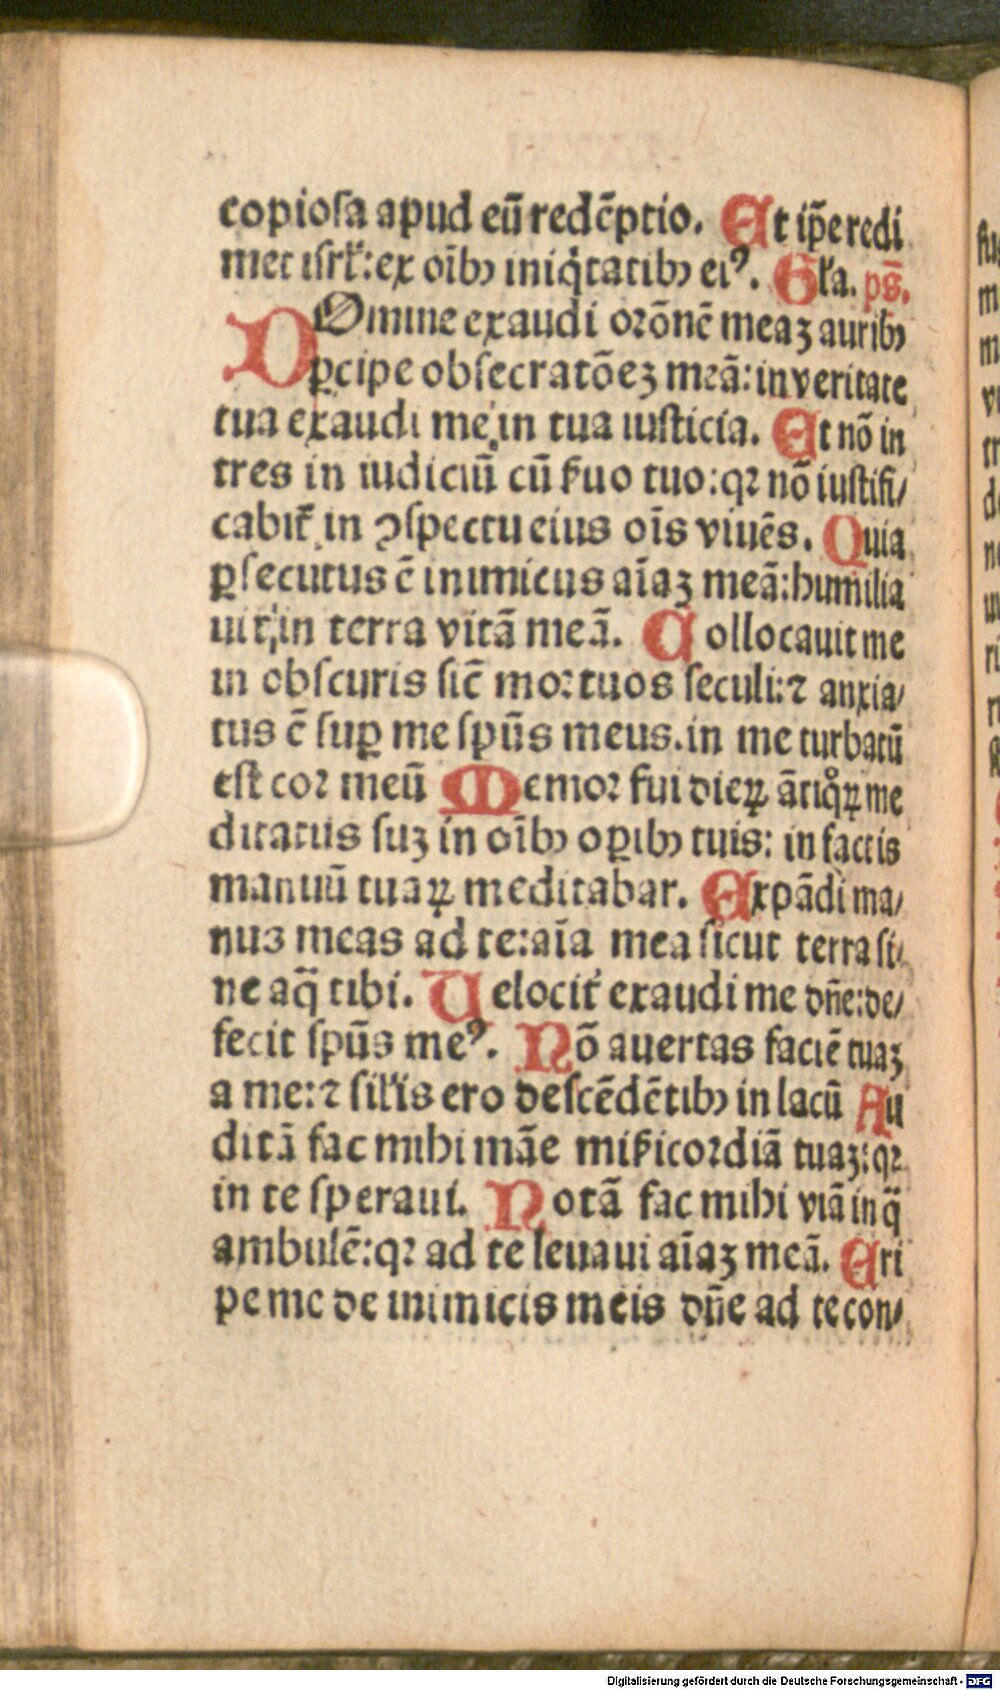 copiosa apud eū redēptio. Et ip̄e redi
met isrl̄: ex oīb⁊ iniq̇tatib⁊ ei⁹. Gl̄a. ps̄.
DOmine exaudi orōnē meaꝫ aurib⁊
ꝑcipe obsecratōeꝫ meā: in veritate
tua exaudi me in tua iusticia. Et nō in
tres in iudiciū cū ẜuo tuo: qꝛ nō iustifi/
cabit̄ in ↄspectu eius oīs viuēs. Quia
ꝑsecutus ē inimicus aīaꝫ meā: humilia
uit in terra vitā meā. Collocauit me
in obscuris sic̄ moꝛtuos seculi: ⁊ anxia/
tus ē suꝑ me spūs meus. in me turbatū
est coꝛ meū Memoꝛ fui dieꝝ ātiqͦꝝ me
ditatus suꝫ in oīb⁊ oꝑib⁊ tuis: in factis
manuū tuaꝝ meditabar. Expādi ma/
nus meas ad te: aīa mea sicut terra si/
ne aq̄ tibi. Uelocit̄ exaudi me dn̄e: de/
fecit spūs me⁹. Nō auertas faciē tuaꝫ
a me: ⁊ sil'is ero descēdētib⁊ in lacū Au
ditā fac mihi māe miẜicoꝛdiā tuaꝫ: qꝛ
in te speraui. Notā fac mihi viā in q̄
ambulē: qꝛ ad te leuaui aīaꝫ meā. Eri
pe me de inimicis meis dn̄e ad te con/
Digitalisierung gefördert durch die Deutsche Forschungsgemeinschaft - DFG